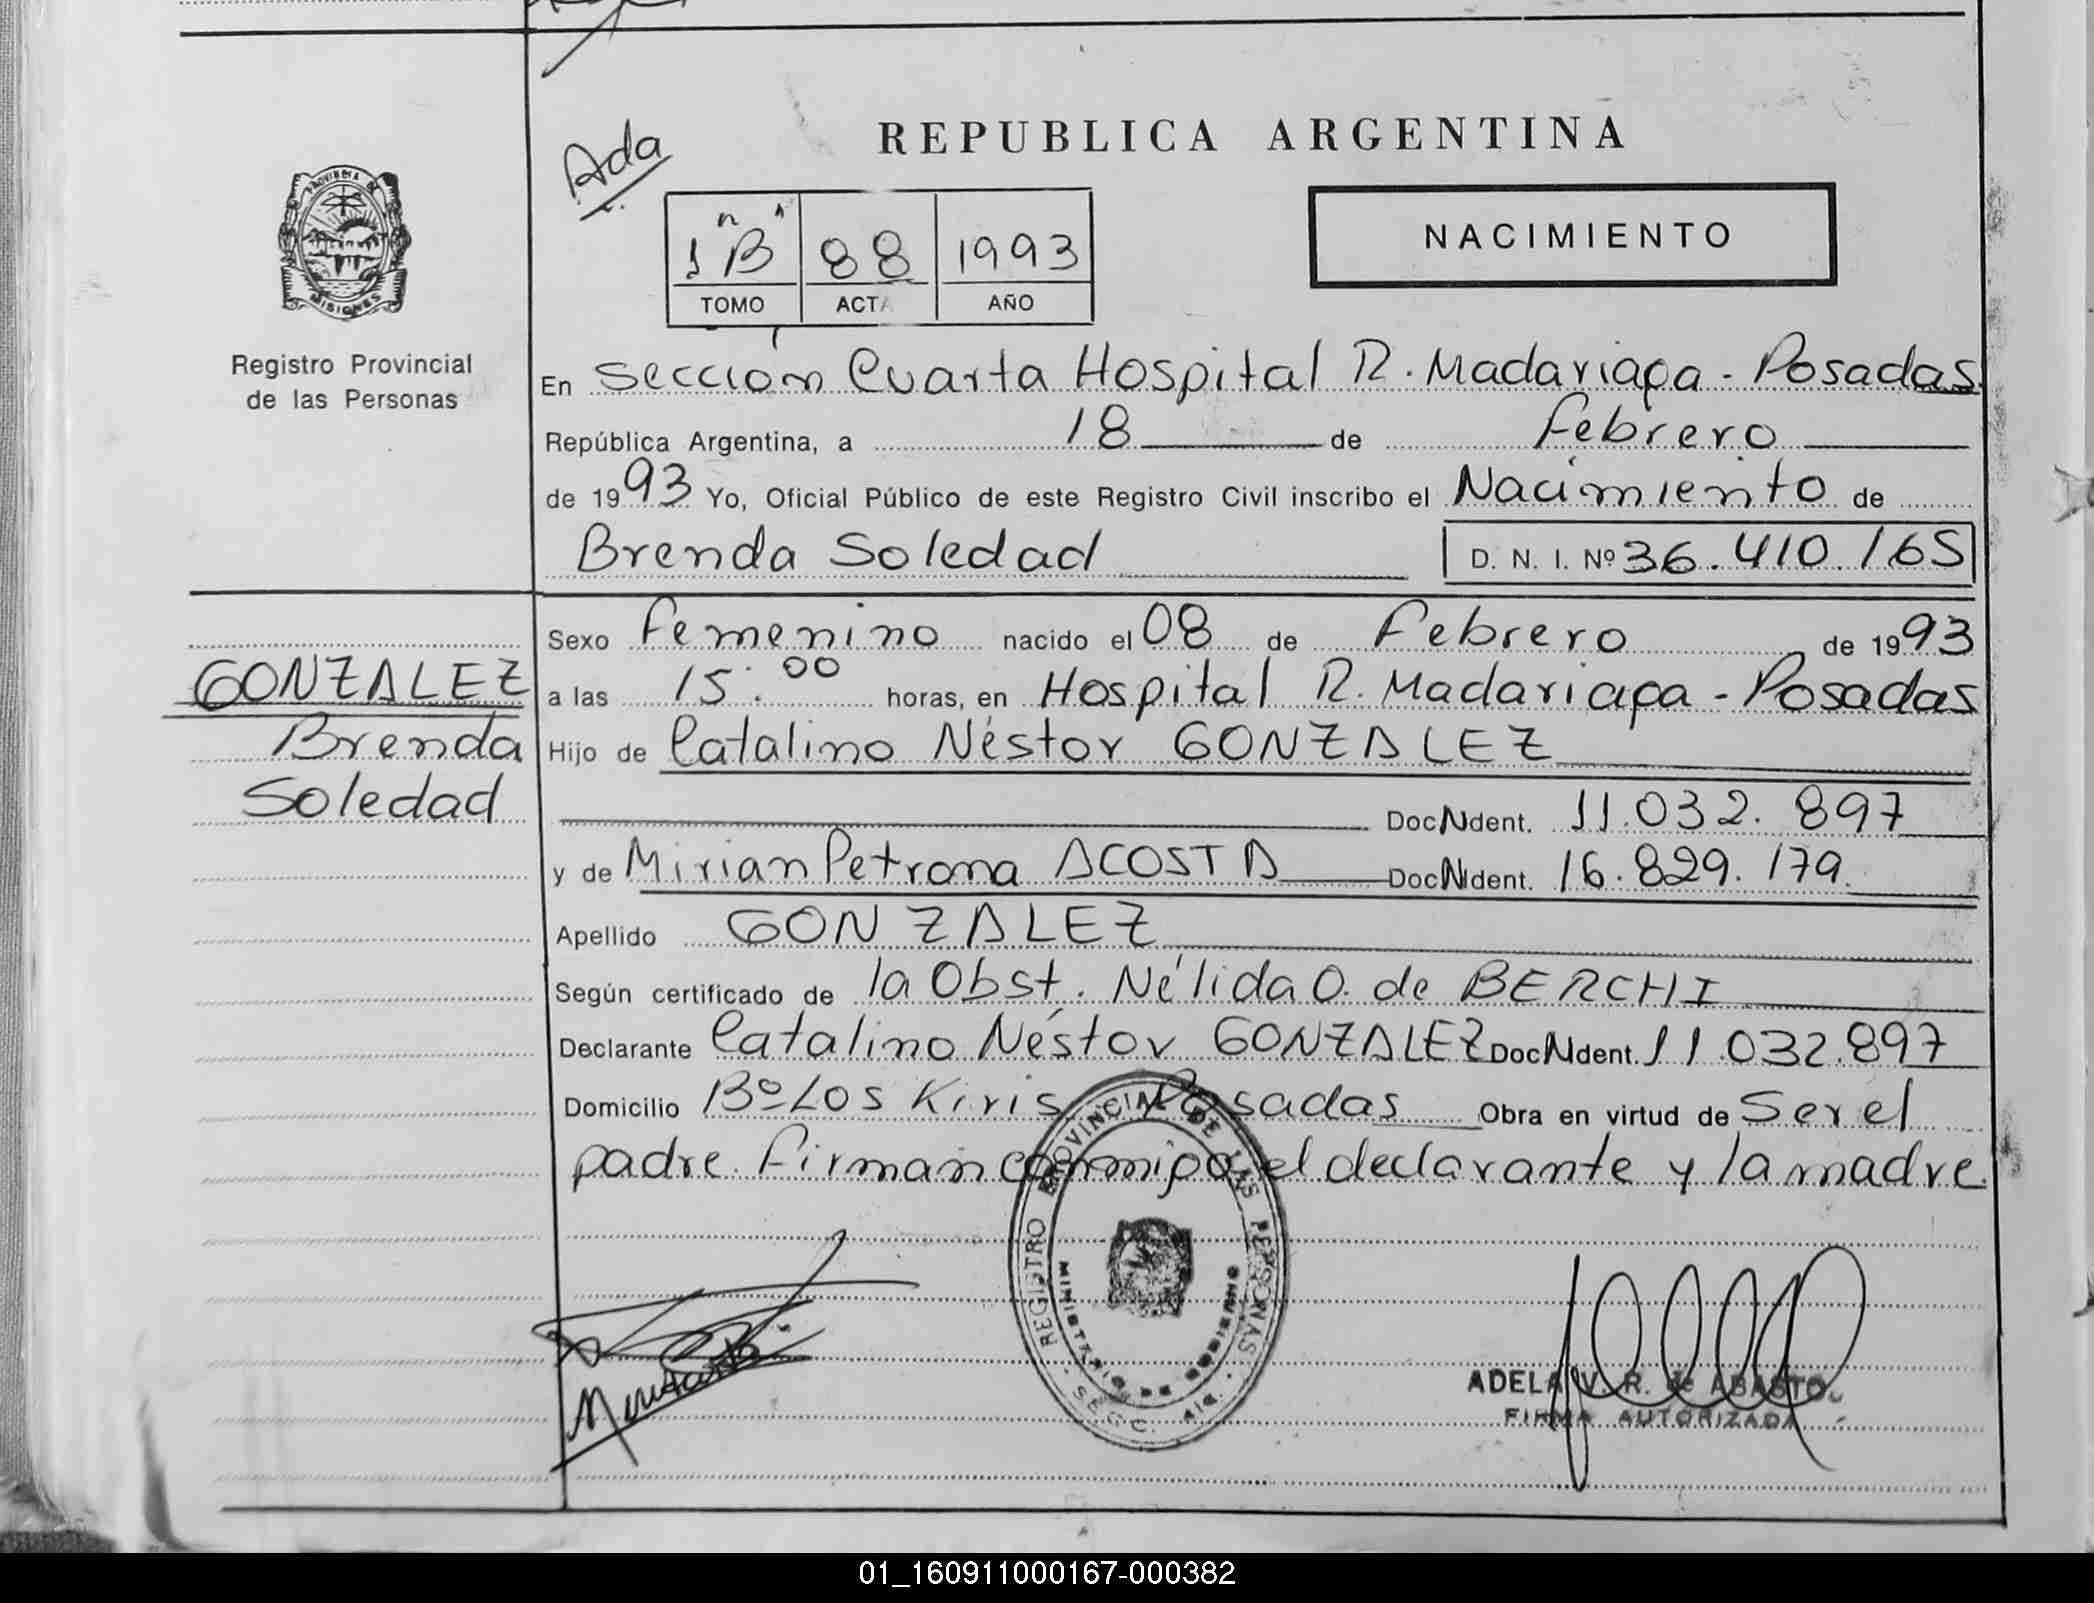 REPUBLICA ARGENTINA
Ada
NACIMIENTO
1ºB 88 1993
TOMO ACTA AÑO
PROVINCIA DE MISIONES
Registro Provincial
de las Personas
En Sección Cuarta Hospital R. Madariaga - Posadas
República Argentina, a 18 de Febrero
de 1993 Yo, Oficial Público de este Registro Civil inscribo el Nacimiento de
Brenda Soledad D. N. I. Nº 36.410.165
GONZALEZ
Brenda
Soledad
Sexo Femenino nacido el 08 de Febrero de 1993
a las 15:00 horas, en Hospital R. Madariaga - Posadas
Hijo de Catalino Néstor GONZALEZ
Doc N Ident. 11.032.897
y de Mirian Petrona ACOSTA Doc N Ident. 16.829.179
Apellido GONZALEZ
Según certificado de la Obst. Nélida O. de BERCHI
Declarante Catalino Néstor GONZALEZ Doc N Ident. 11.032.897
Domicilio Bº Los Kiris Posadas Obra en virtud de Ser el
padre. Firman conmigo el declarante y la madre
REGISTRO PROVINCIAL DE LAS PERSONAS
MINISTERIO DE GOBIERNO
ADELA V. R. de ABASTO
FIRMA AUTORIZADA
01_160911000167-000382